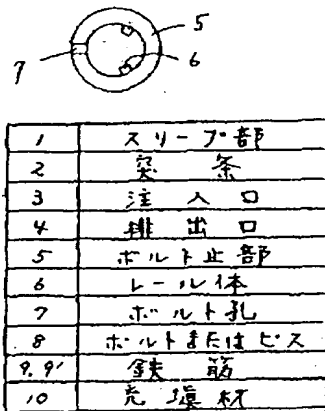 5
6
7
1 スリーブ部
2 突条
3 注入口
4 排出口
5 ボルト止部
6 レール体
7 ボルト孔
8 ボルトまたはビス
9, 9' 鉄筋
10 充塡材